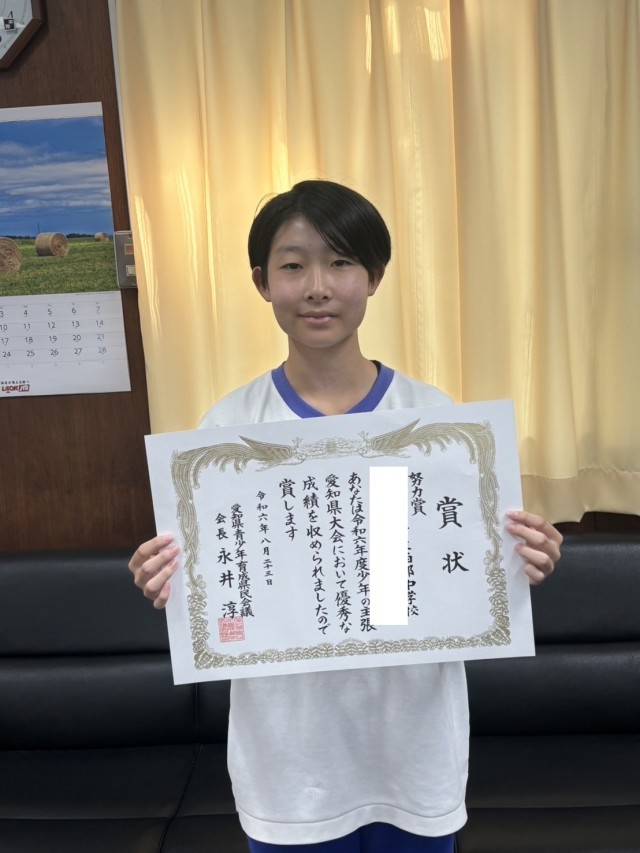 賞状
努力賞
中学校
あなたは令和六年度少年の主張
愛知県大会において優秀な
成績を収められましたので
賞します
令和六年八月二十三日
愛知県青少年育成県民会議
会長 永井 淳
3 4 5 6 7
10 11 12 13 14
17 18 19 20 21
24 25 26 27 28